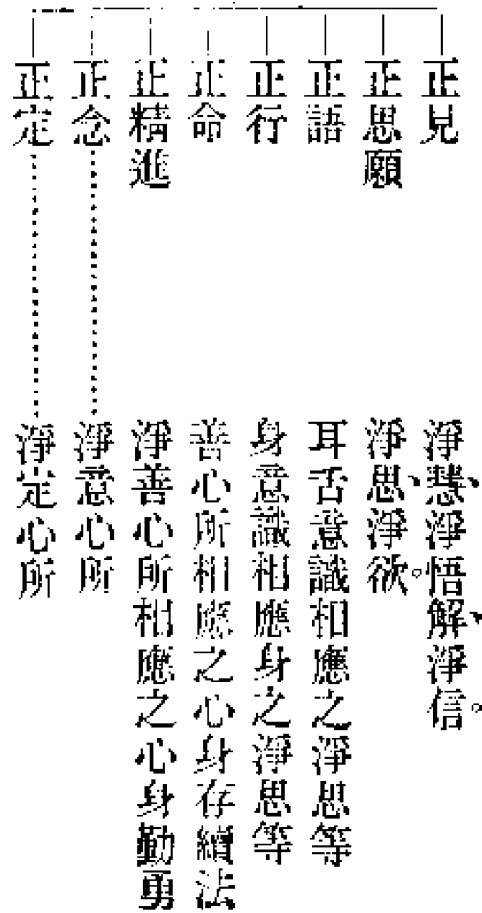 正見 淨慧、淨悟解、淨信。
正思願 淨思、淨欲。
正語 耳舌意識相應之淨思等
正行 身意識相應身之淨思等
正命 善心所相應之心身存續法
正精進 淨善心所相應之心身勤勇
正念 淨意心所
正定 淨定心所